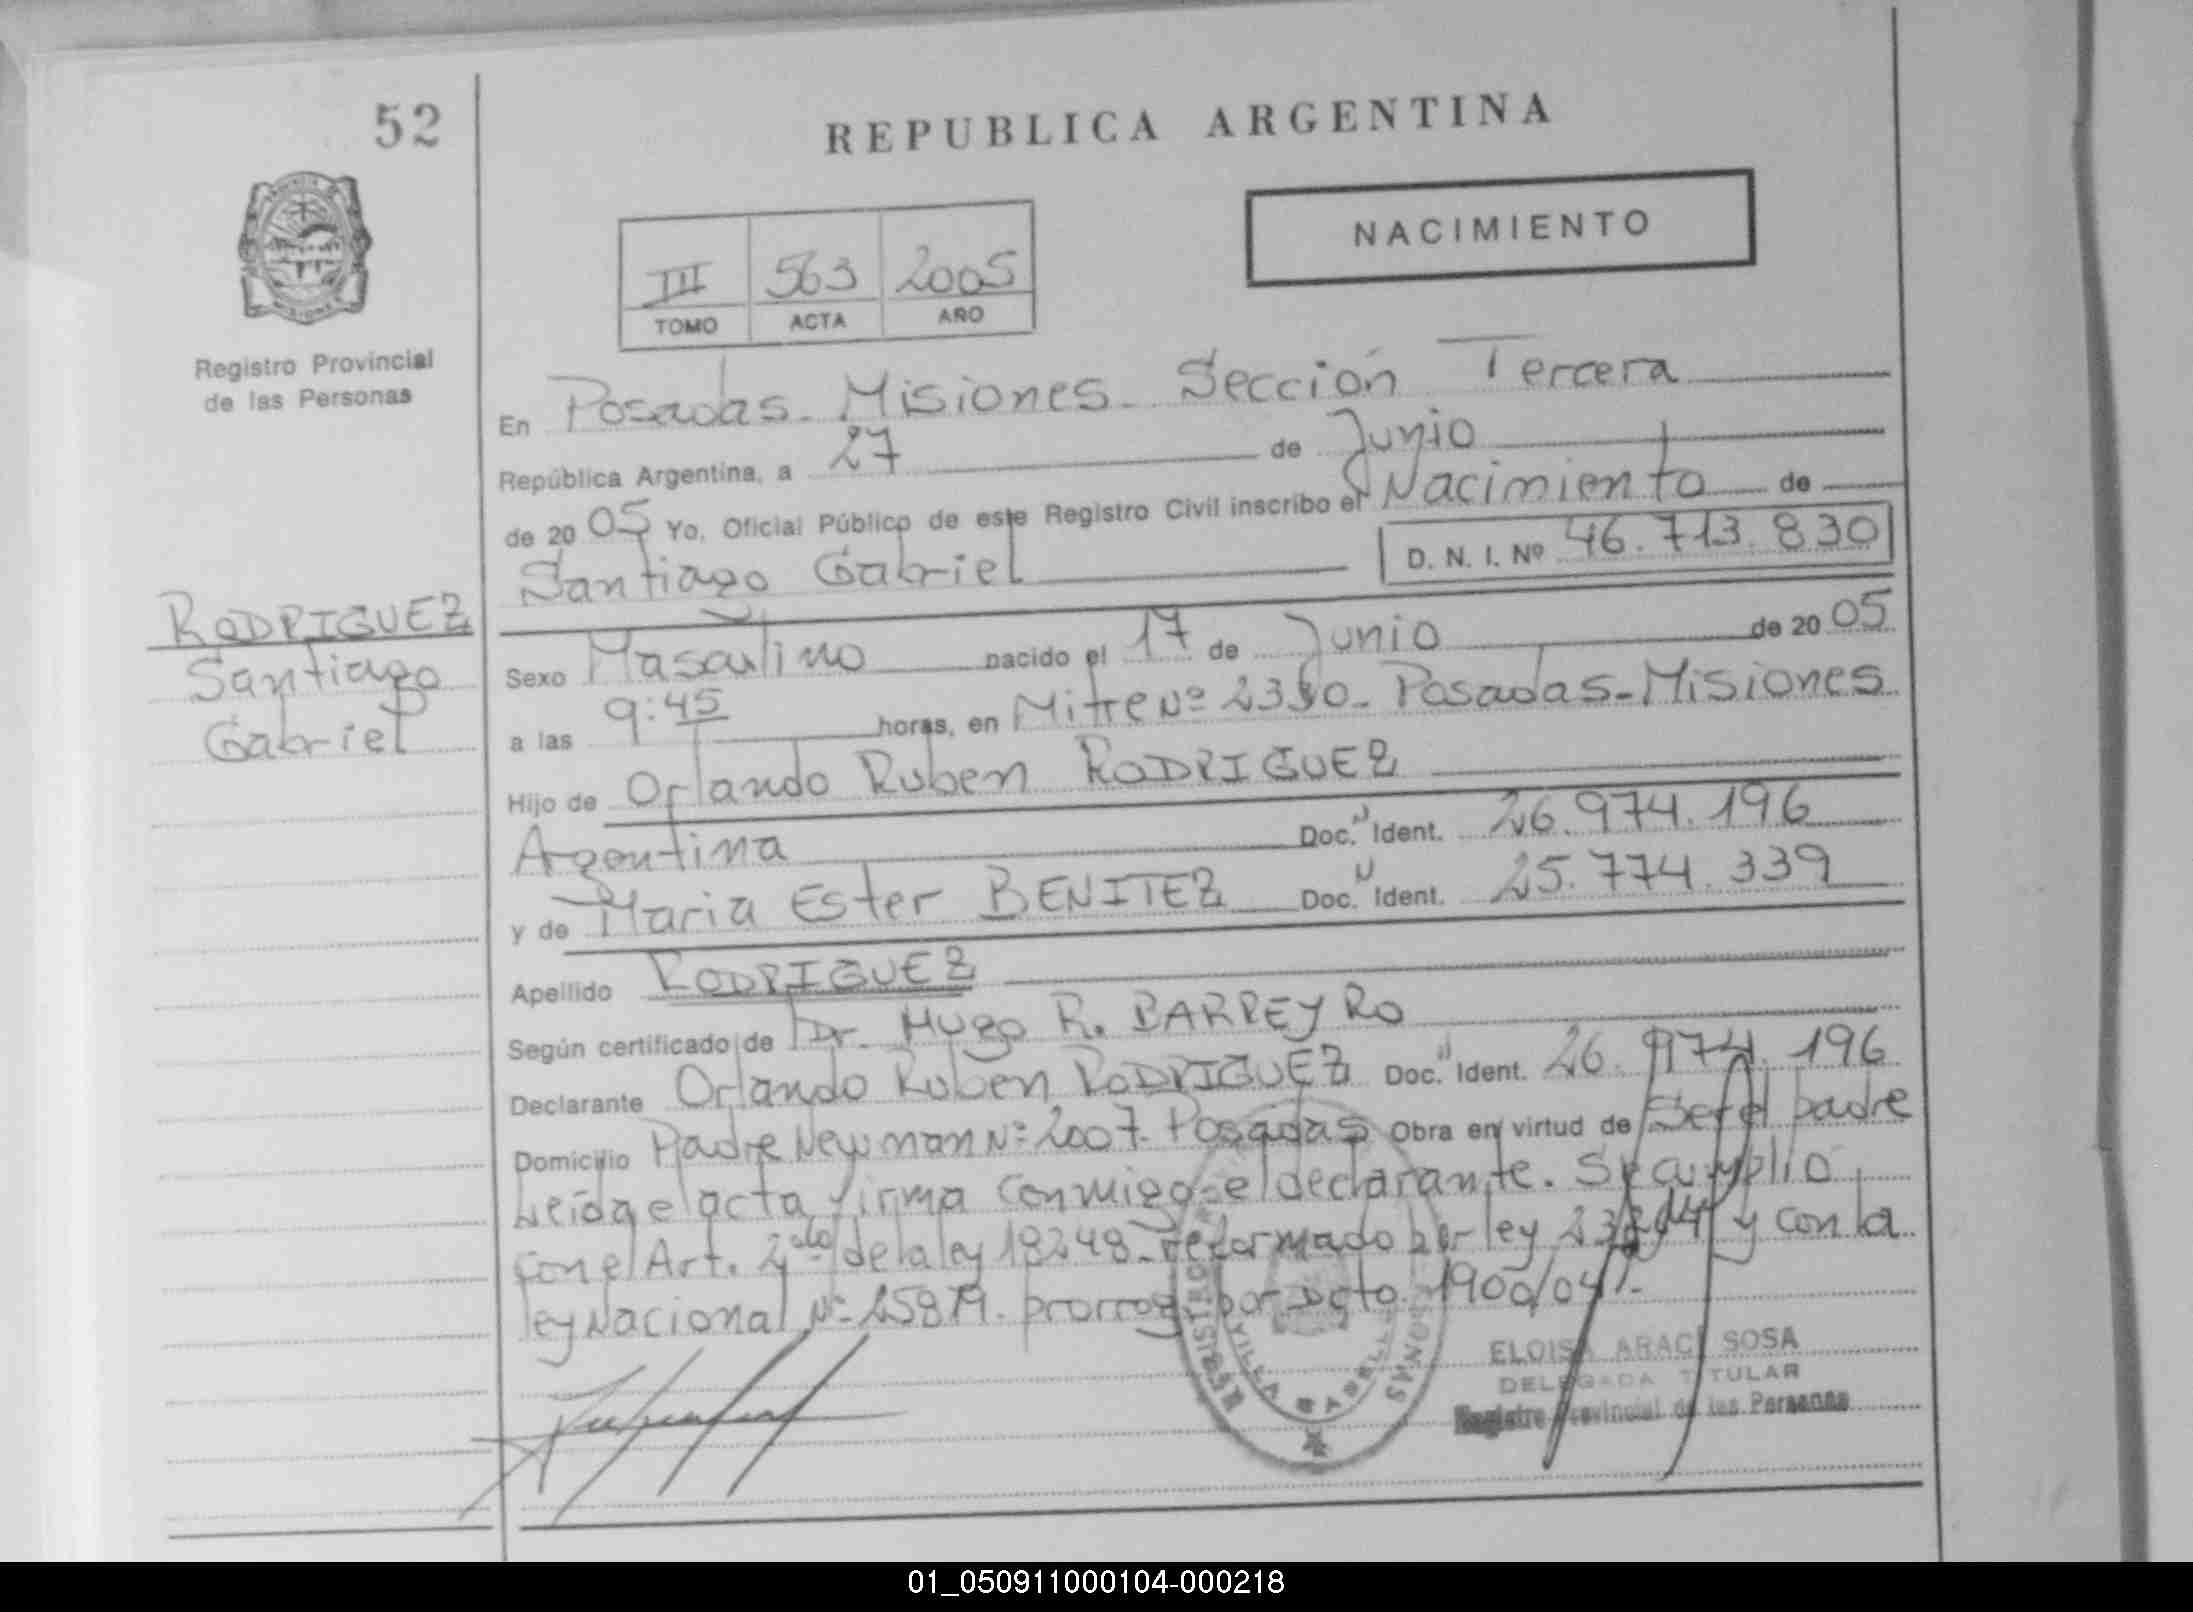 52
REPUBLICA ARGENTINA
NACIMIENTO
III 563 2005
TOMO ACTA AÑO
Registro Provincial
de las Personas
En Posadas - Misiones - Sección Tercera
República Argentina, a 27 de Junio
de 2005 Yo, Oficial Público de este Registro Civil inscribo el Nacimiento de
Santiago Gabriel D. N. I. Nº 46.713.830
RODRIGUEZ
Santiago
Gabriel
Sexo Masculino nacido el 17 de Junio de 2005
a las 9:45 horas, en Mitre Nº Posadas - Misiones
Hijo de Orlando Ruben RODRIGUEZ
Argentina Doc. Ident. 26.974.196
y de Maria Ester BENITEZ Doc. Ident. 25.774.339
Apellido RODRIGUEZ
Según certificado de Dr. Hugo R. BARREYRO
Declarante Orlando Ruben RODRIGUEZ Doc. Ident. 26.974.196
Domicilio Padre Newman Nº 2007. Posadas Obra en virtud de Ser el padre
Leída el acta firma conmigo el declarante. Se cumplió
con el Art. 2 de la ley 18248 - reformado por ley y con la
ley Nacional Nº prorrog. por Dcto. 1900/04.-
VILLA
ELOISA ARACI SOSA
DELEGADA TITULAR
Registro Provincial de las Personas
01_050911000104-000218